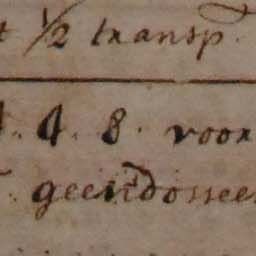 ½ transp.
4. 8. voor
geendossee